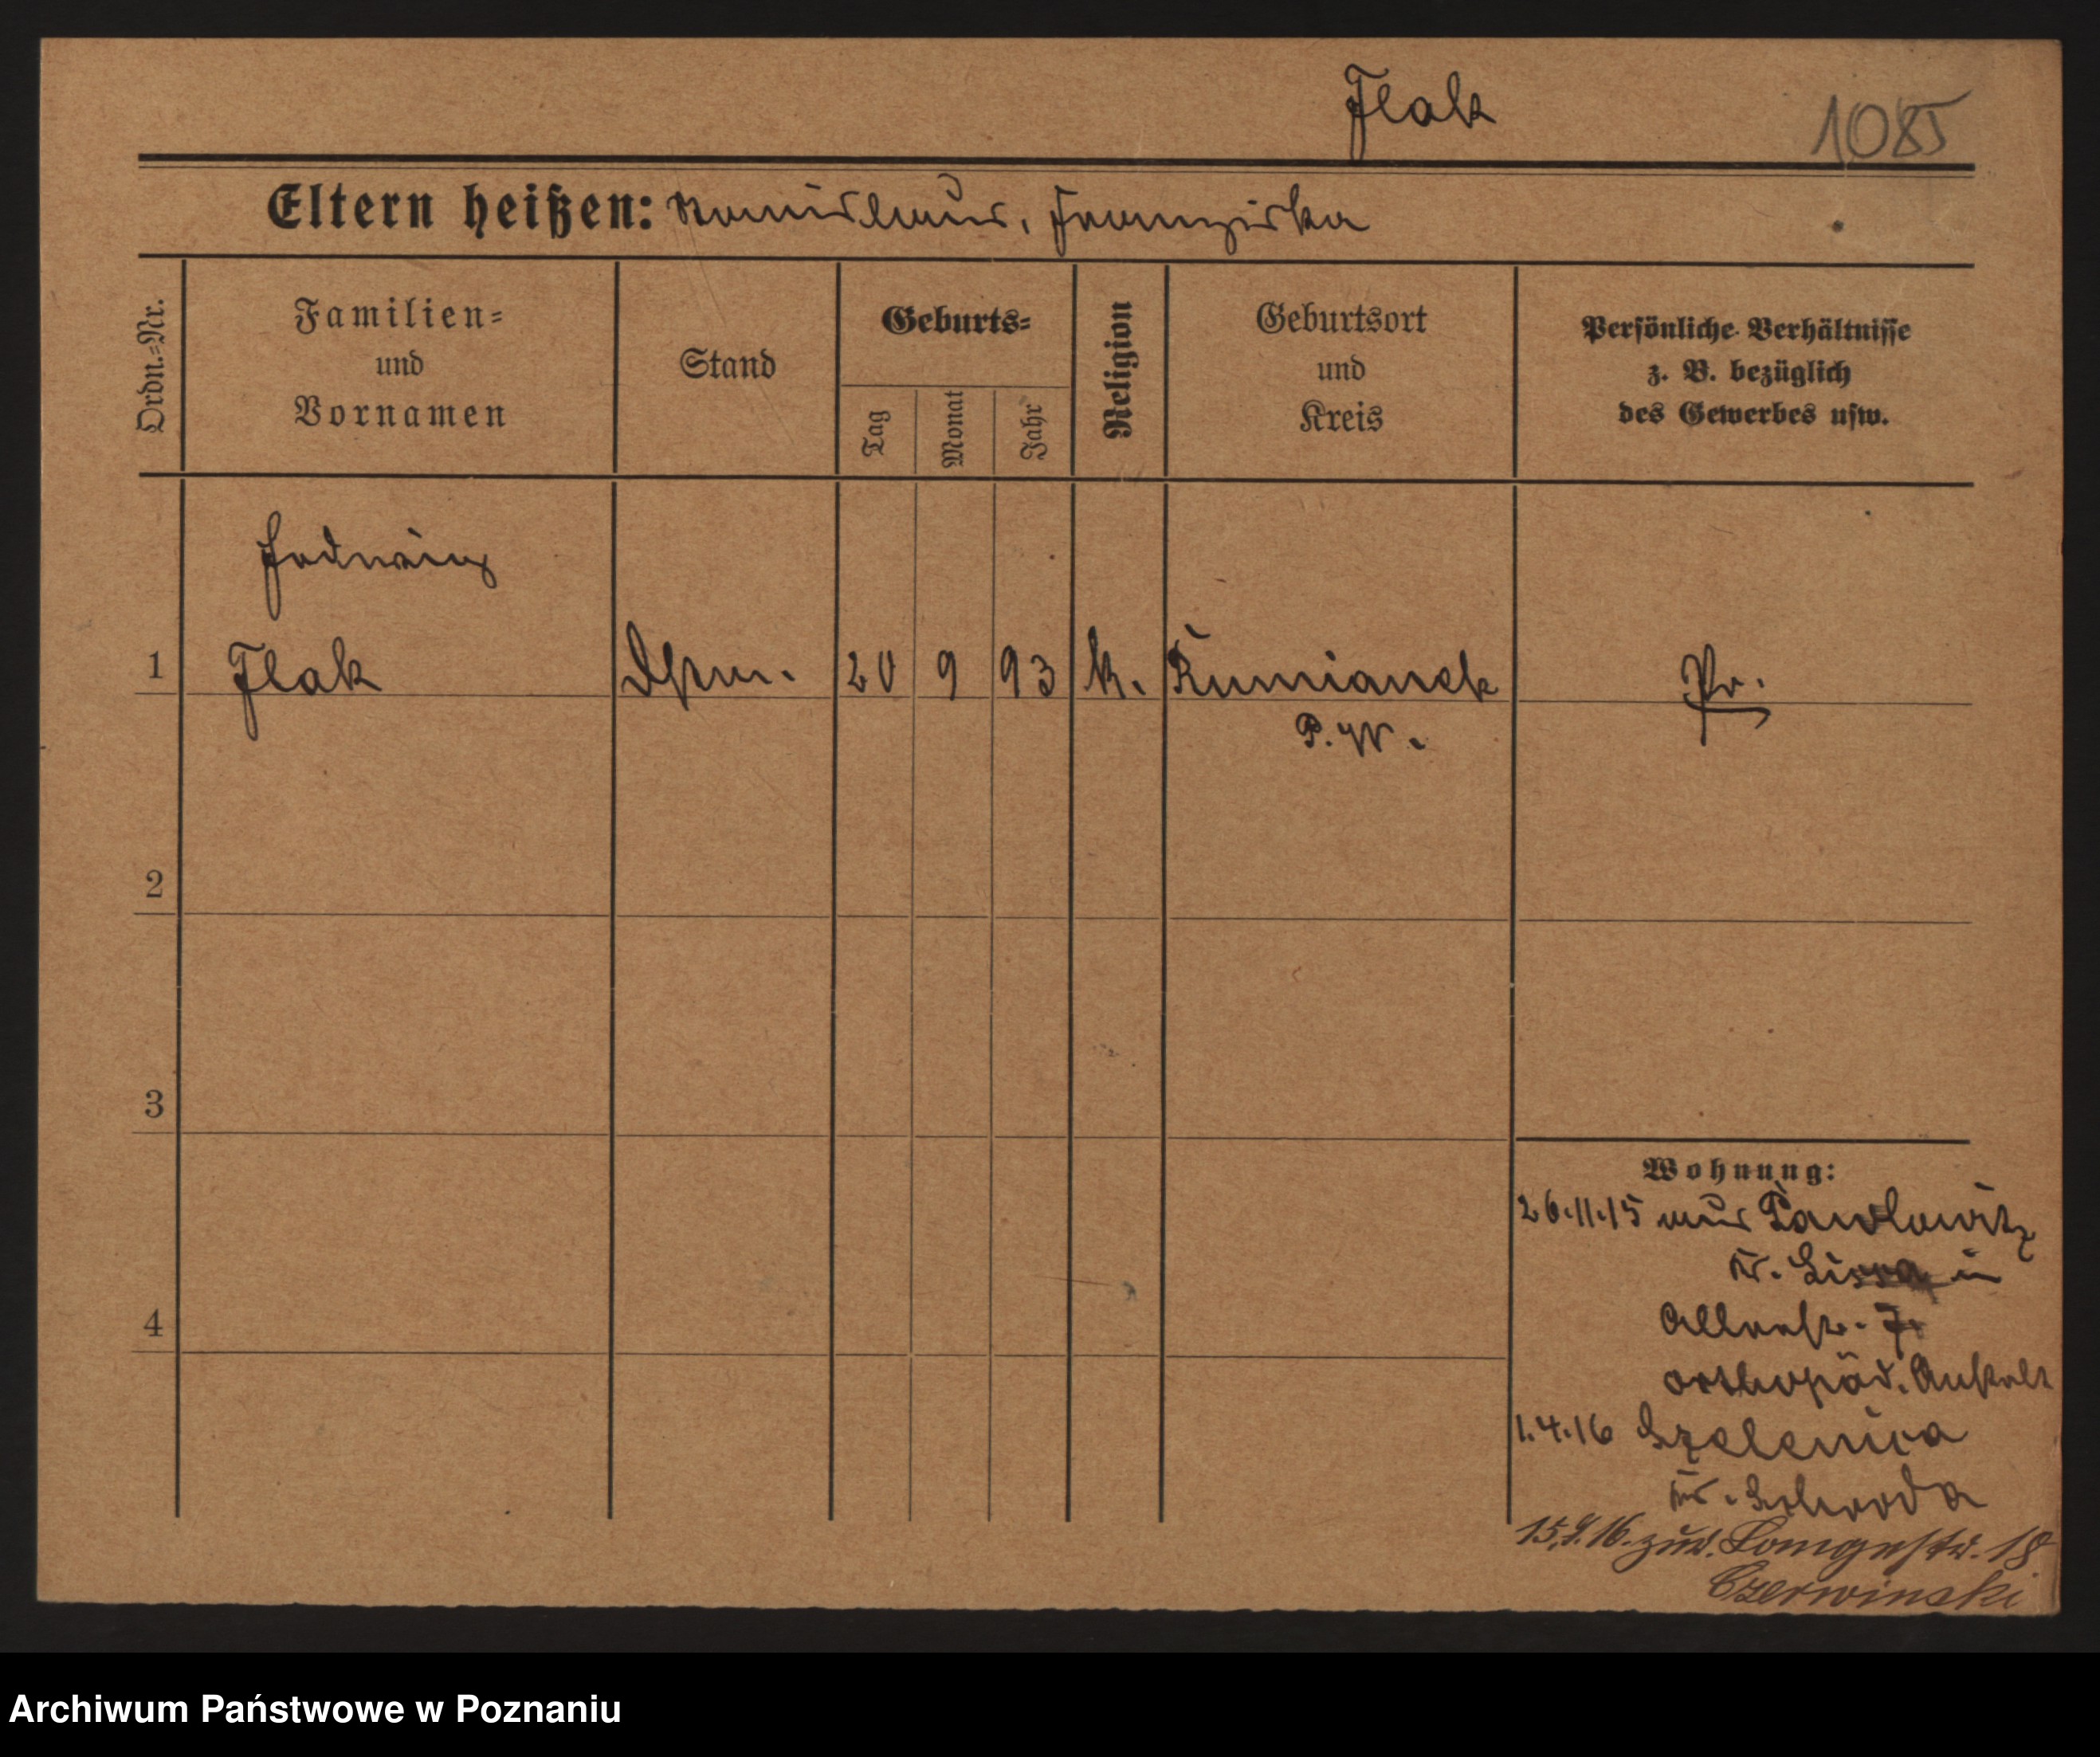 Flak
1085
Eltern heißen: Stanislaus, Franziska
Ordn.=Nr.
Familien=
und
Vornamen
Stand
Geburts=
Tag
Monat
Jahr
Religion
Geburtsort
und
Kreis
Persönliche Verhältnisse
z. B. bezüglich
des Gewerbes usw.
Hedwig
1 Flak 20 9 93 k. Rumianek Pr.
P. W.
2
3
4
Wohnung:
26.11.15 aus Pawlowitz
Kr. Lissa in
Alleestr. 7
orthopäd. Anstalt
1.4.16 Szelenica
Kr. Schroda
zur. Langestr. 18
Czerwinski
Archiwum Państwowe w Poznaniu